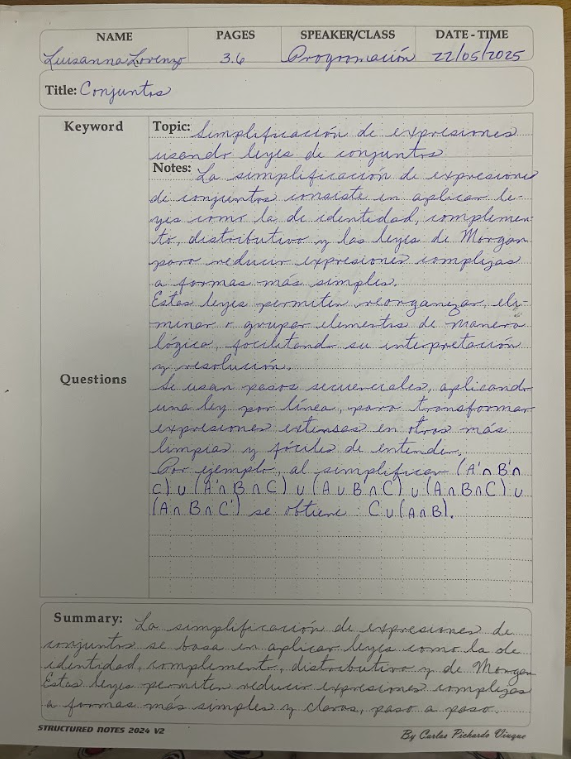 NAME PAGES SPEAKER/CLASS DATE - TIME
Luisanna Lorenzo 3.6 Programación 22/05/2025
Title: Conjuntos
Keyword
Topic: Simplificación de expresiones
usando leyes de conjuntos
Notes: La simplificación de expresiones
de conjuntos consiste en aplicar le-
yes como la de identidad, complemen-
to, distributivo y las leyes de Morgan
para reducir expresiones complejas
a formas más simples.
Estas leyes permiten reorganizar, eli-
minar o grupar elementos de manera
lógica, facilitando su interpretación
y resolución.
Questions
Se usan pasos secuenciales, aplicando
una ley por línea, para transformar
expresiones extensas en otras más
limpias y fáciles de entender.
Por ejemplo, al simplificar (A'∩B'∩
C)∪(A'∩B∩C)∪(A∪B∩C')∪(A∩B∩C)∪
(A∩B∩C') se obtiene: C∪(A∩B).
Summary: La simplificación de expresiones de
conjuntos se basa en aplicar leyes como la de
identidad, complemento, distributivo y de Morgan
Estas leyes permiten reducir expresiones complejas
a formas más simples y claras, paso a paso.
STRUCTURED NOTES 2024 V2 By Carlos Pichardo Viuque